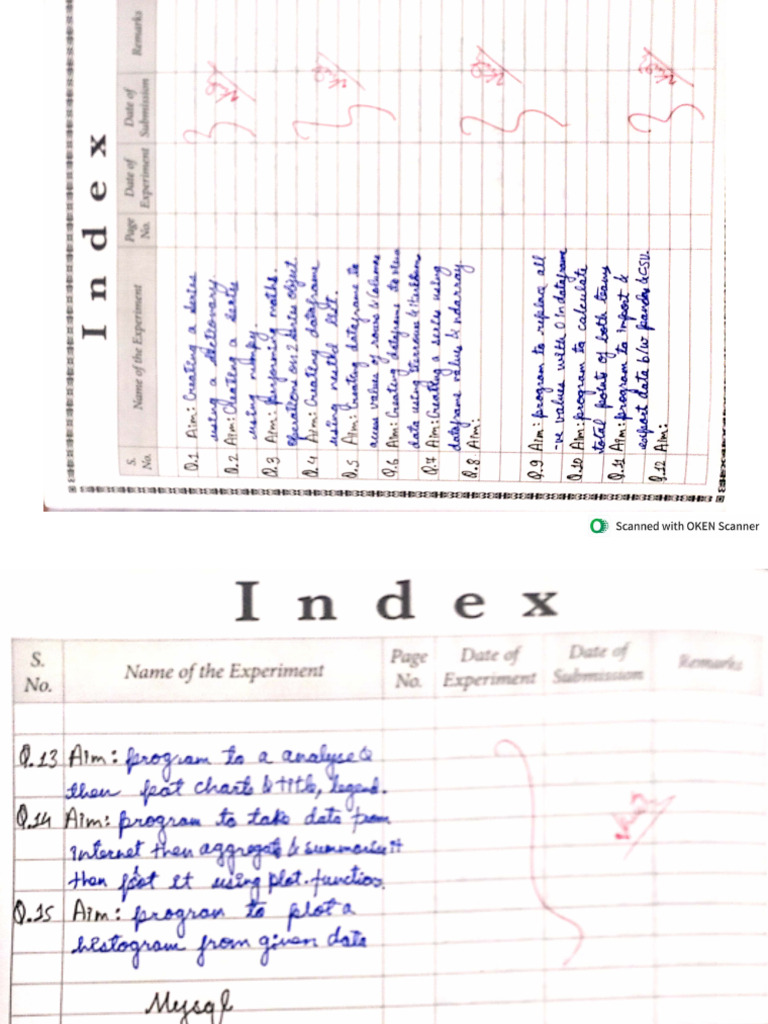 Index
S. No.
Name of the Experiment
Page No.
Date of Experiment
Date of Submission
Remarks
Q.1 Aim: Creating a series
using a dictionary.
Q.2 Aim: Creating a series
using numpy.
Q.3 Aim: performing maths.
operations on 2 series object
Q.4 Aim: Creating dataframe
using nested list.
Q.5 Aim: Creating dataframe to
access values of rows & columns
Q.6 Aim: Creating dataframe to view
data using
Q.7 Aim: Creating a series using
dataframe value & ndarray
Q.8 Aim:
Q.9 Aim: program to replace all
-ve values with 0 in dataframe
Q.10 Aim: program to calculate
total points of both teams
Q.11 Aim: program to import &
export data b/w pandas & CSV.
Q.12 Aim:
Scanned with OKEN Scanner
Index
S. No.
Name of the Experiment
Page No.
Date of Experiment
Date of Submission
Remarks
Q.13 Aim: program to a analyse &
then charts & title, legend.
Q.14 Aim: program to take data from
internet then aggregate & summarize it
then it using plot.function.
Q.15 Aim: program to plot a
histogram from given data
Mysql